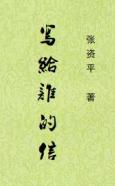 写給誰的信
张资平 著